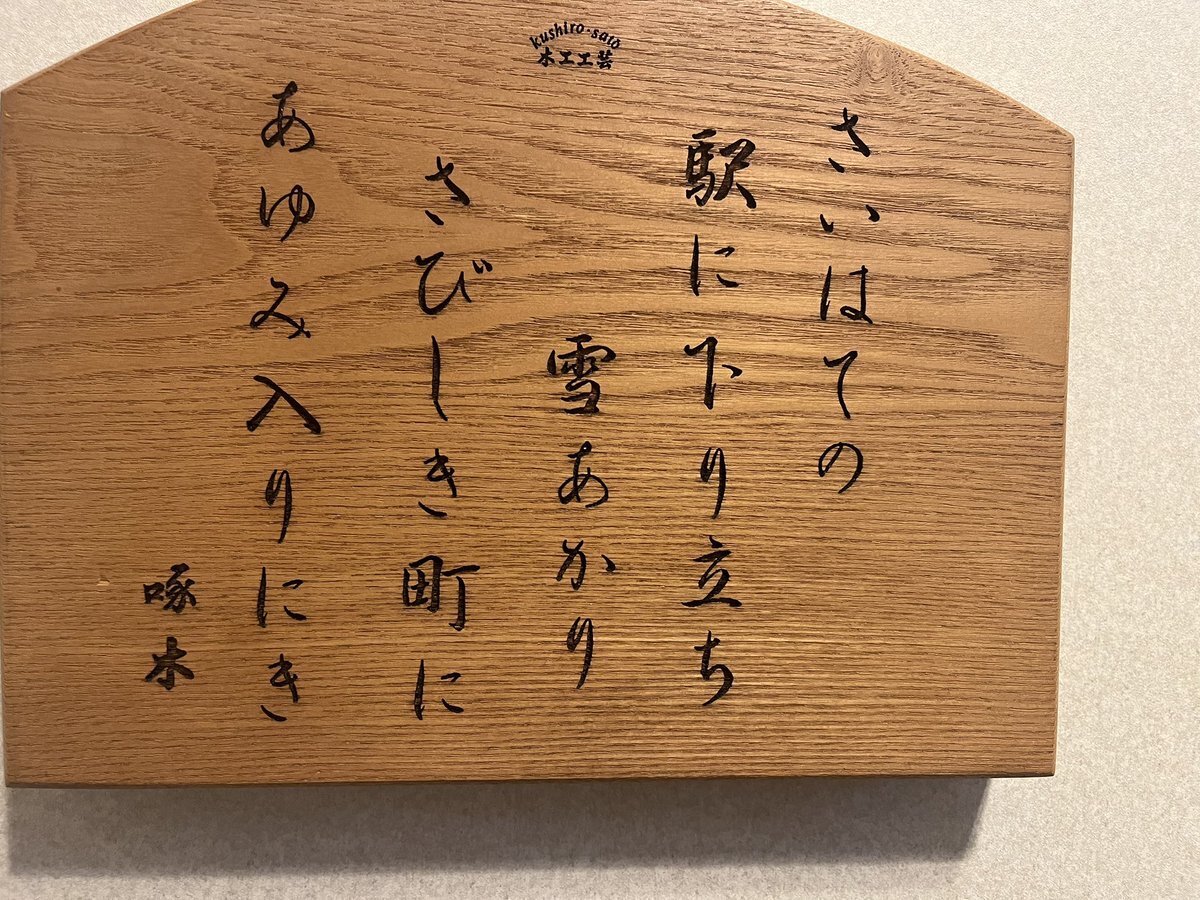 kushiro・sato
木工工芸
さいはての
駅に下り立ち
雪あかり
さびしき町に
あゆみ入りにき
啄木